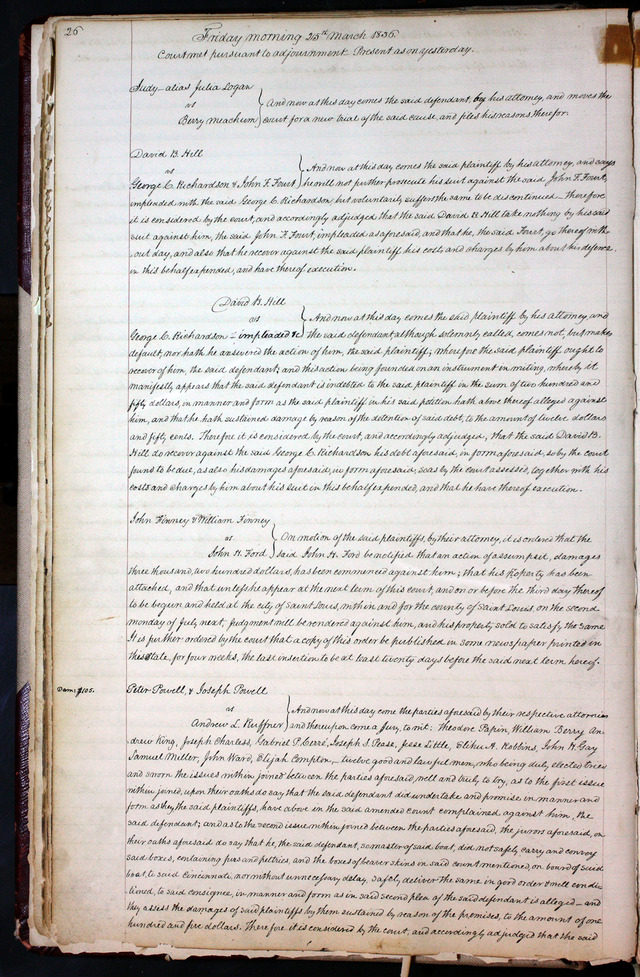 26
Friday morning 25th March 1836.
Court met pursuant to adjournment. Present as on yesterday.
Judy alias Julia Logan
vs
Berry Meachum
And now at this day comes the said defendant, by his attorney, and moves the
court for a new trial of the said cause, and files his reasons therefor.
David B. Hill
vs
George C. Richardson & John F. Fourt
And now at this day comes the said plaintiff by his attorney, and says
he will not further prosecute his suit against the said John F. Fourt,
impleaded with the said George C. Richardson, but voluntarily suffers the same to be discontinued. Therefore
it is considered by the court, and accordingly adjudged that the said David B. Hill take nothing by his said
suit against him, the said John F. Fourt, impleaded as aforesaid, and that he, the said Fourt, go thereof with-
out day, and also that he recover against the said plaintiff his costs and charges by him about his defence
in this behalf expended, and have thereof execution.
David B. Hill
vs
George C. Richardson - impleaded &c
And now at this day comes the said plaintiff by his attorney, and
the said defendant although solemnly called, comes not, but makes
default, nor hath he answered the action of him, the said plaintiff; wherefore the said plaintiff ought to
recover of him the said defendant; and this action being founded on an instrument in writing, whereby it
manifestly appears that the said defendant is indebted to the said plaintiff in the sum of two hundred and
fifty dollars, in manner and form as the said plaintiff in his said petition hath above thereof alleged against
him, and that he hath sustained damage by reason of the detention of said debt, to the amount of twelve dollars
and fifty cents. Therefore it is considered by the court, and accordingly adjudged, that the said David B.
Hill do recover against the said George C. Richardson his debt aforesaid, in form aforesaid, so by the court
found to be due, as also his damages aforesaid, in form aforesaid, so as by the court assessed, together with his
costs and charges by him about his suit in this behalf expended, and that he have thereof execution.
John Finney & William Finney
vs
John H. Ford
On motion of the said plaintiffs, by their attorney, it is ordered that the
said John H. Ford be notified that an action of assumpsit, damages
three thousand, two hundred dollars, has been commenced against him; that his property has been
attached, and that unless he appear at the next term of this court, and on or before the third day thereof
to be begun and held at the city of Saint Louis, within and for the county of Saint Louis, on the second
monday of July next, judgment will be rendered against him, and his property sold to satisfy the same
It is further ordered by the court that a copy of this order be published in some newspaper printed in
this State, for four weeks, the last insertion to be at least twenty days before the said next term hereof.
Dam: $105.
Peter Powell, & Joseph Powell
vs
Andrew L. Ruffner
And now at this day come the parties aforesaid by their respective attornies
and thereupon come a Jury, to wit: Theodore Papin, William Berry An-
drew King, Joseph Charless, Gabriel P. Cerré, Joseph S. Pease, Jesse Little, Elihu A. Robbins, John H. Gay
Samuel Miller, John Ward, Elijah Compton, - twelve good and lawful men, who being duly elected tried
and sworn the issues within joined between the parties aforesaid, well and truly to try, as to the first issue
within joined, upon their oaths do say that the said defendant did undertake and promise in manner and
form as they the said plaintiffs, have above in the said amended count complained against him, the
said defendant; and as to the second issue within joined between the parties aforesaid, the jurors aforesaid, on
their oaths aforesaid do say that he, the said defendant, as master of said boat, did not safely carry and convey
said boxes, containing furs and peltries, and the boxes of beaver skins on said count mentioned, on board of said
boat, to said Cincinnati, nor without unnecessary delay, safely deliver the same in good order & well condi-
tioned, to said consignee, in manner and form as in said second plea of the said defendant is alleged - and
they assess the damages of said plaintiffs by them sustained by reason of the premises, to the amount of one
hundred and five dollars. Therefore it is considered by the court, and accordingly adjudged that the said